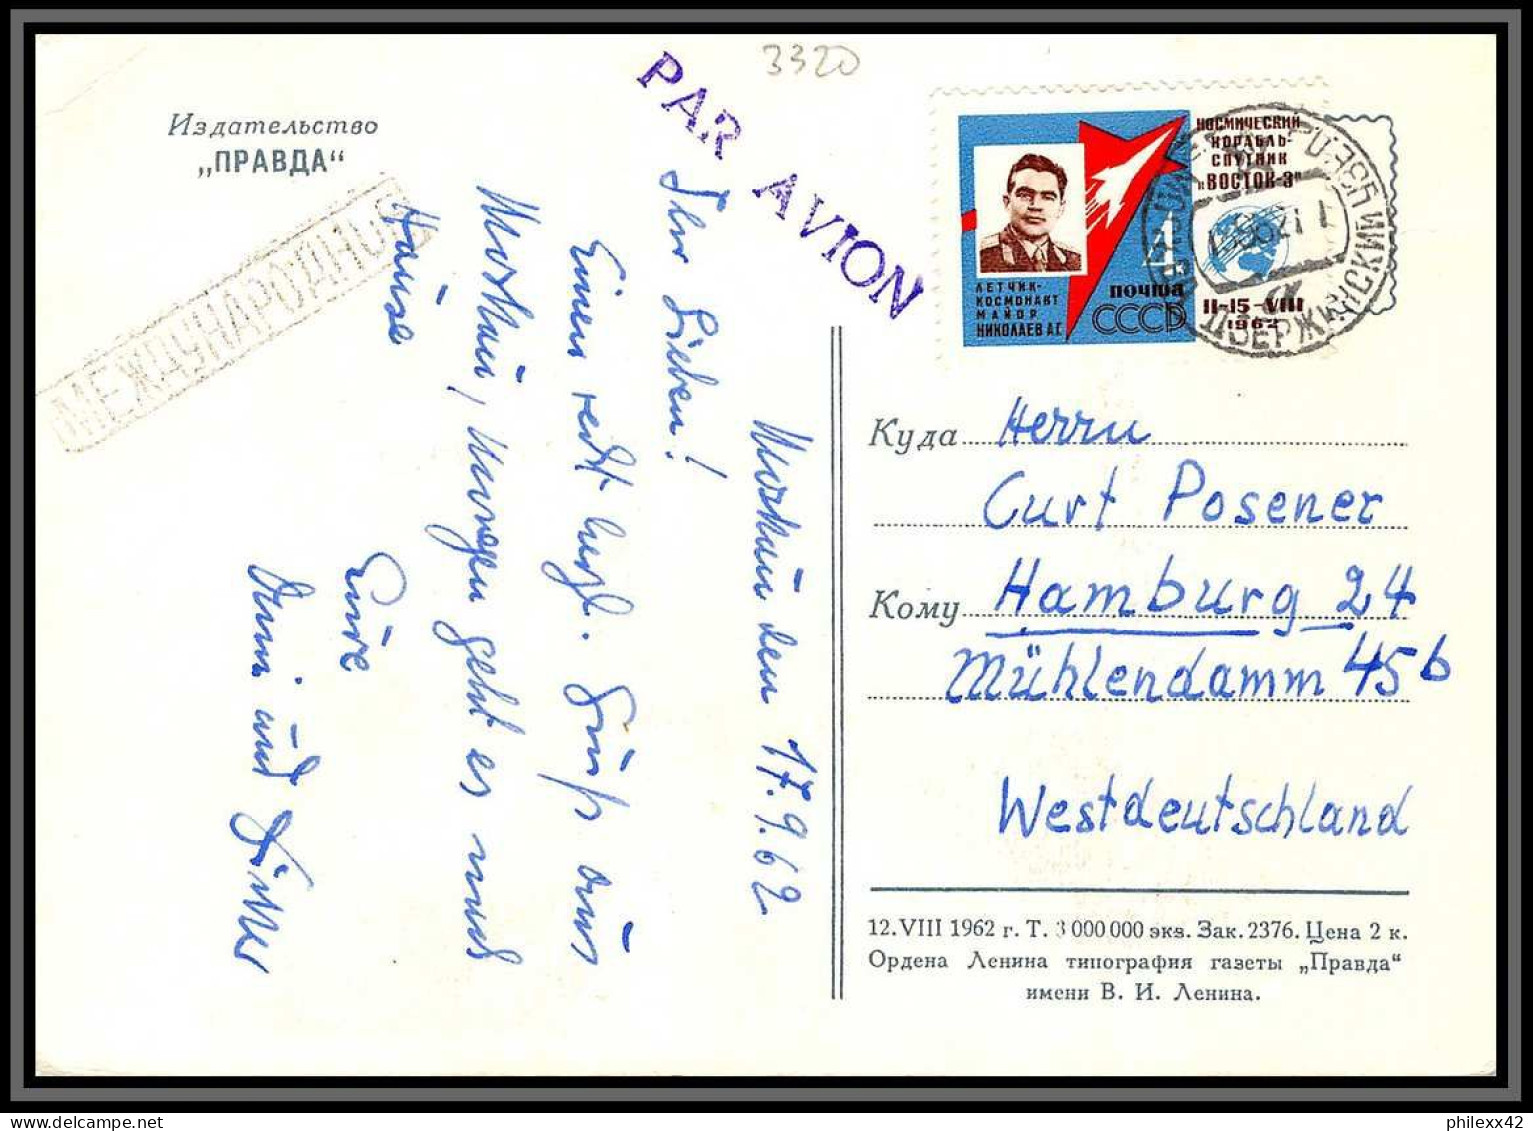 3320
Издательство
„ПРАВДА“
МЕЖДУНАРОДНОЕ
PAR AVION
КОСМИЧЕСКИЙ
КОРАБЛЬ-
СПУТНИК
„ВОСТОК-3“
ЛЕТЧИК-
КОСМОНАВТ
МАЙОР
НИКОЛАЕВ А.Г.
4
почта
СССР
11-15-VIII
1962
ДЗЕРЖИНСКИЙ
Moskau den 17.9.62
Ihr Lieben!
Einen recht herzl. Gruß aus
Moskau, Morgen geht es nach
Hause
Eure
und Dieter
Куда Herrn
Curt Posener
Кому Hamburg 24
Mühlendamm 45b
Westdeutschland
12.VIII 1962 г. Т. 3 000 000 экз. Зак. 2376. Цена 2 к.
Ордена Ленина типография газеты „Правда“
имени В. И. Ленина.
philexx42